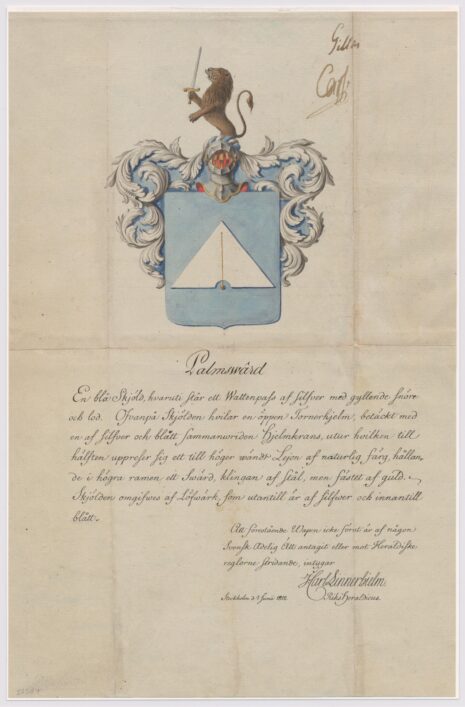 Gilles
Carl
Palmswärd
En blå Skjöld, hvaruti står ett Wattenpass af silfver med gyllende snöre
och lod. Ofvanpå Skjölden hvilar en öppen Tornerhjelm, betäckt med
en af silfver och blått sammanvriden Hjelmkrans, utur hvilken till
hälften uppreser sig ett till höger wändt Lejon af naturlig färg, hållan,
de i högra ramen ett Swärd, klingan af stål, men fästet af guld.
Skjölden omgifves af Löfwärk, som utantill är af silfwer och innantill
blått.
Att förestående Wapen icke förut är af någon
Svensk Adelig Ätt antagit eller mot Heraldiske
reglorne stridande, intygar
Linnerhielm
Stockholm d. Junii
Riks Heraldicus.